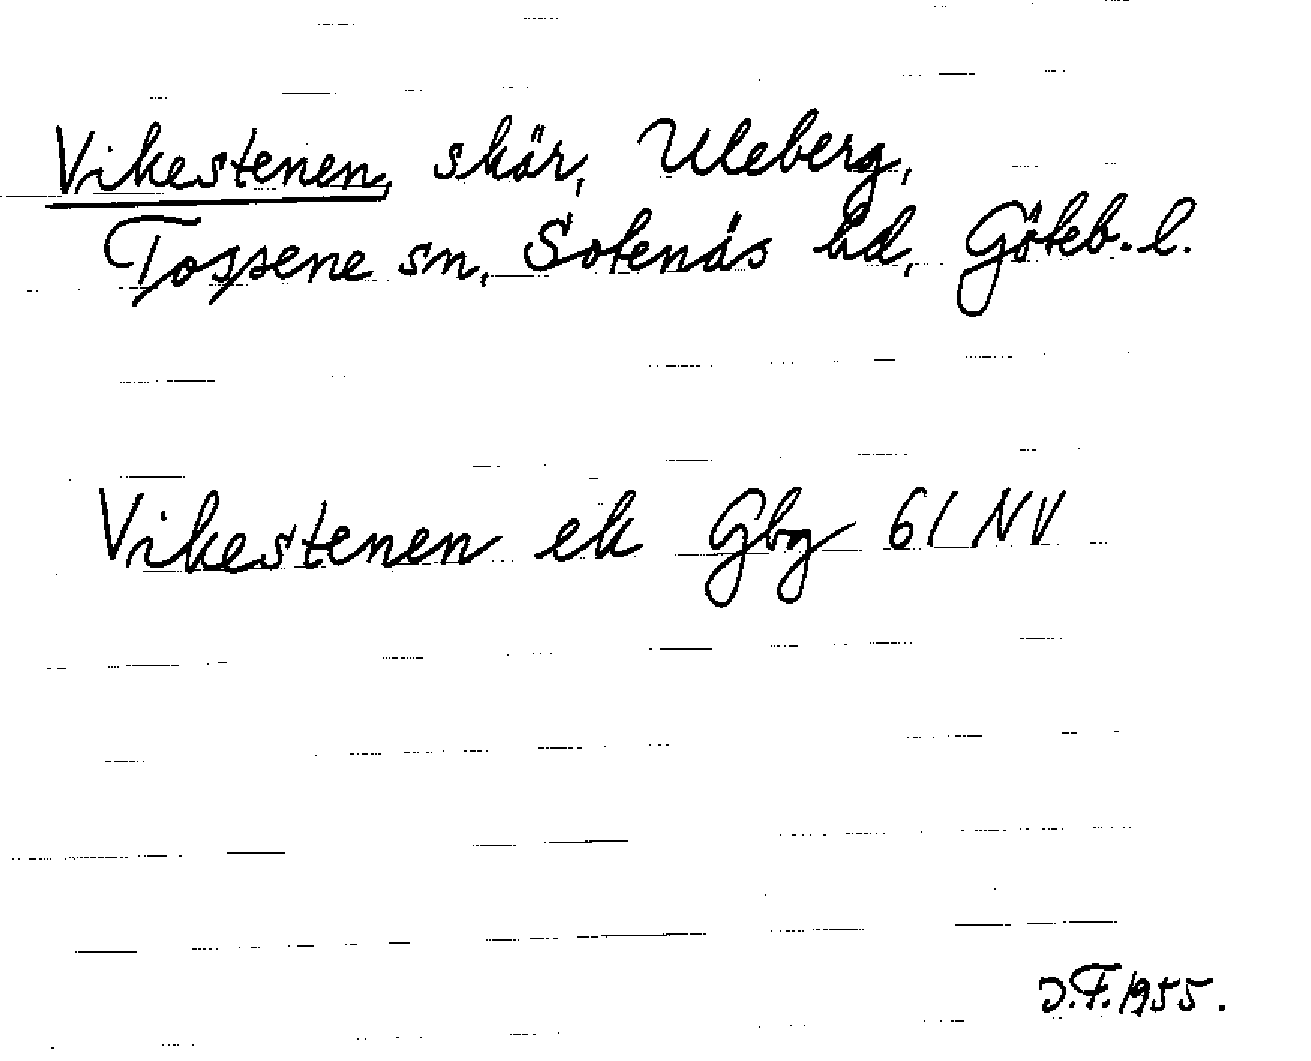 Vikestenen, skär, Uleberg,
Tossene sn, Sotenäs hd, Göteb. l.
Vikestenen ek Gbg 61 NV
J.F. 1955.